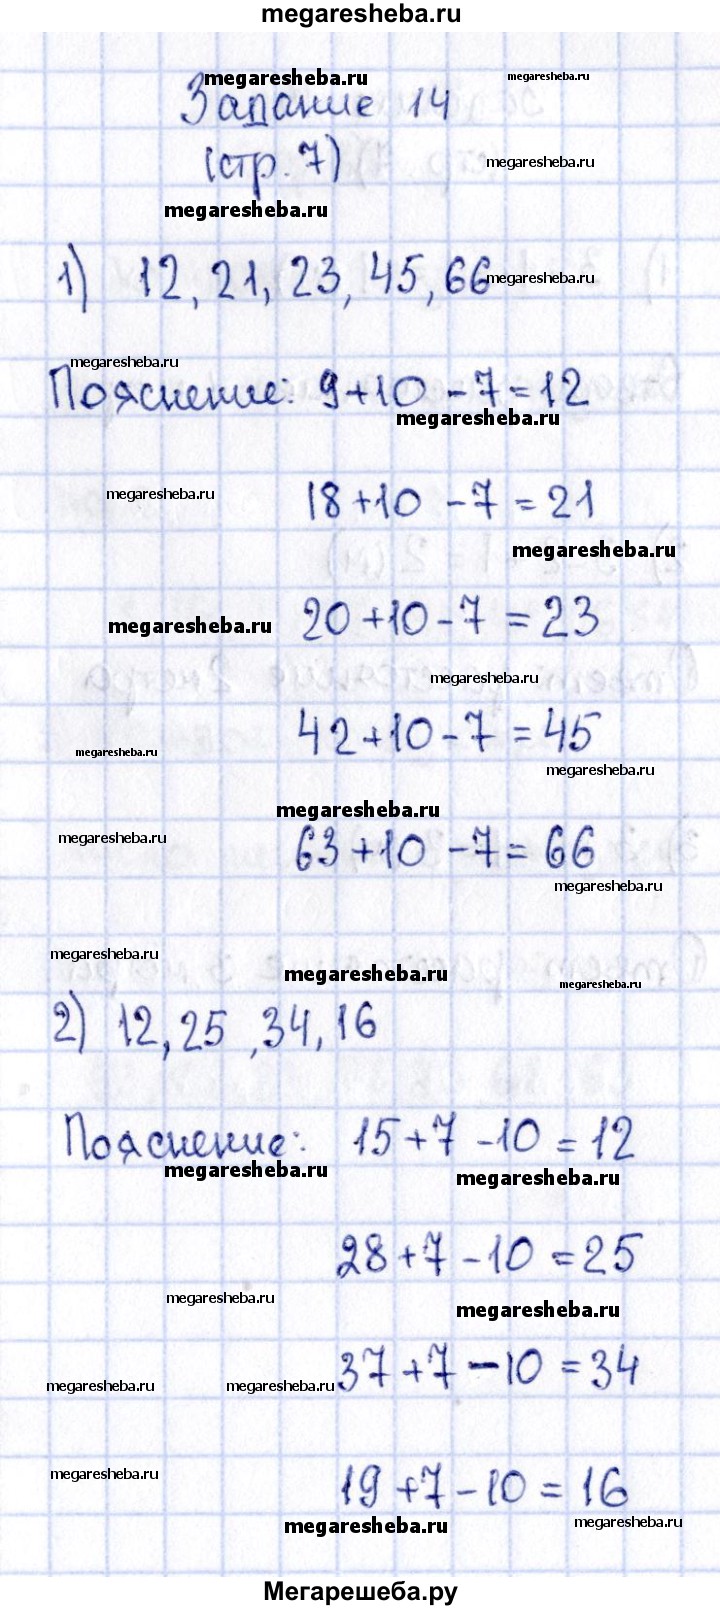 megaresheba.ru
megaresheba.ru
megaresheba.ru
Задание 14
(стр. 7)
megaresheba.ru
megaresheba.ru
1) 12, 21, 23, 45, 66
megaresheba.ru
megaresheba.ru
Пояснение: 9+10-7=12
megaresheba.ru
megaresheba.ru
18+10-7=21
megaresheba.ru
megaresheba.ru
20+10-7=23
megaresheba.ru
42+10-7=45
megaresheba.ru
megaresheba.ru
megaresheba.ru
megaresheba.ru
63+10-7=66
megaresheba.ru
megaresheba.ru
megaresheba.ru
megaresheba.ru
2) 12, 25, 34, 16
Пояснение: 15+7-10=12
megaresheba.ru
megaresheba.ru
28+7-10=25
megaresheba.ru
megaresheba.ru
37+7-10=34
megaresheba.ru
megaresheba.ru
megaresheba.ru
19+7-10=16
megaresheba.ru
megaresheba.ru
Мегарешеба.ру